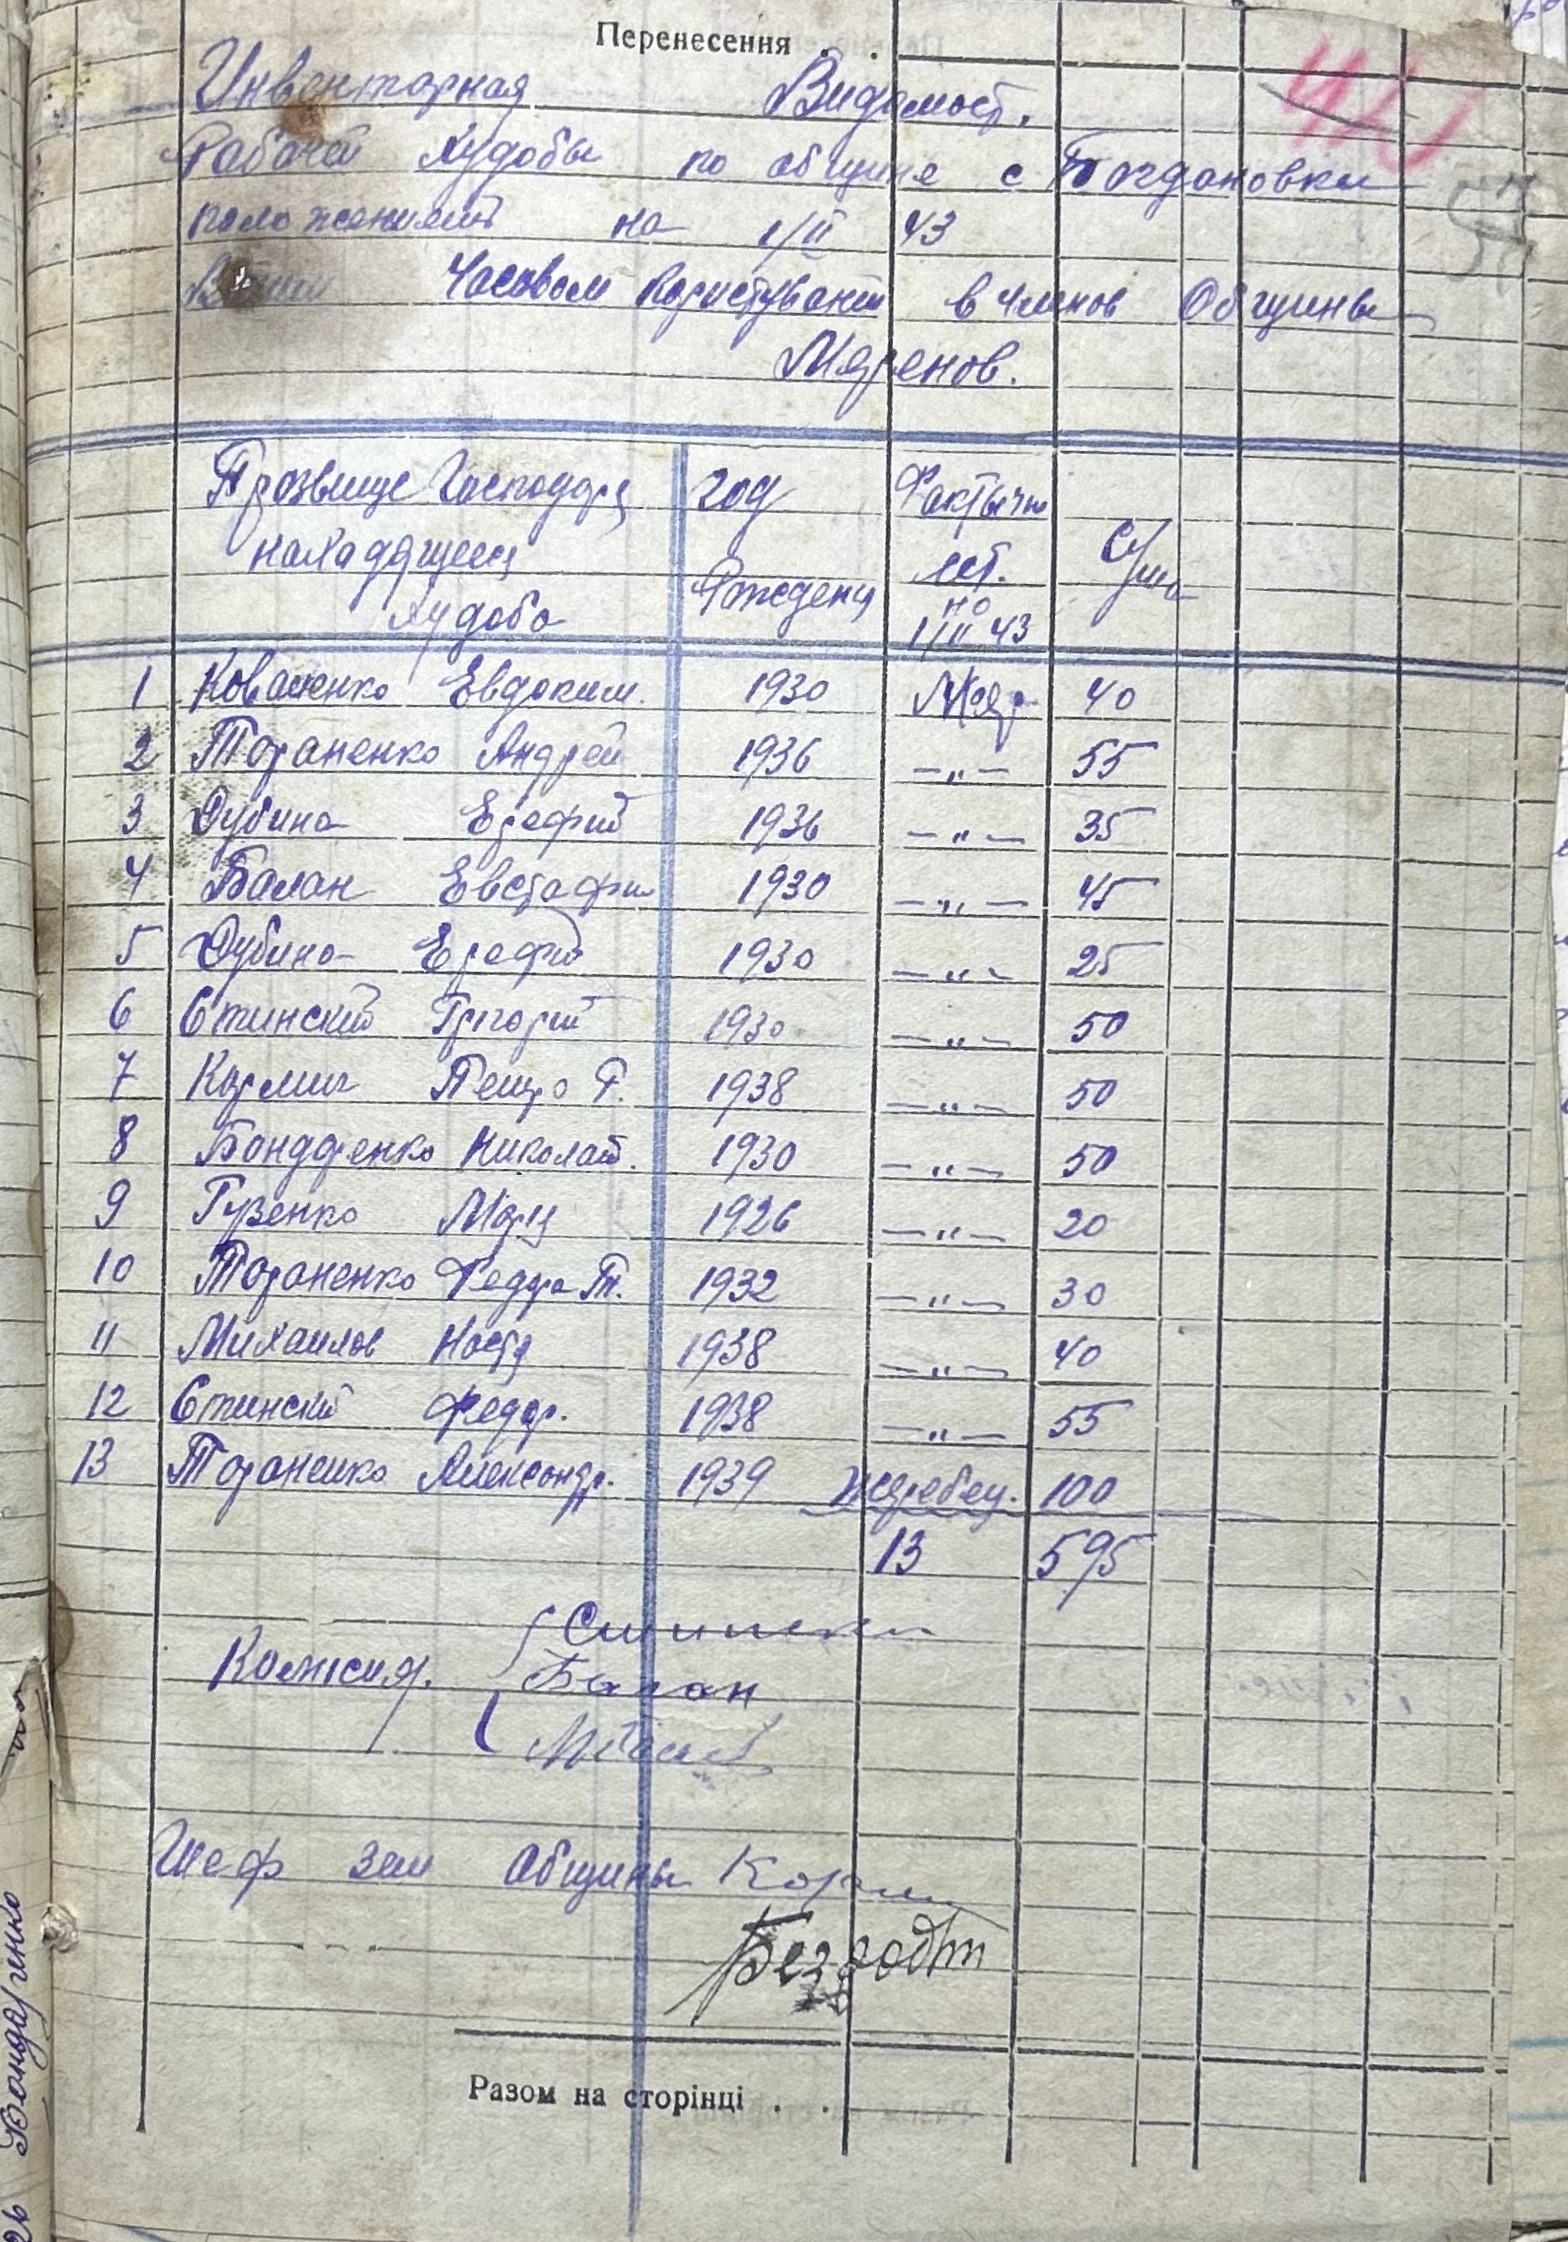 Перенесення . .
Инвентарная Видомость.
Рабочей Худобы по общине с Богдановки
положенияй на 1/II 43
Часовом Користувани в членов Общины
Меренов.
Прозвище Господаря год Фактычно Сума
находящиеся Рожденя лет.
худоба на 1/II 43
1 Коваленко Евдоким. 1930 Мер. 40
2 Тараненко Андрей 1936 —„— 55
3 Дубина Ерофий 1936 —„— 35
4 Балан Евстафи 1930 —„— 45
5 Дубина Ерофий 1930 —„— 25
6 Стинский Григорий 1930 —„— 50
7 Кармиг Петро Г. 1938 —„— 50
8 Бондаренко Николай. 1930 —„— 50
9 Гузенко Маря 1926 —„— 20
10 Тараненко Федора Т. 1932 —„— 30
11 Михаилов Настя 1938 —„— 40
12 Стинский Федор. 1938 —„— 55
13 Тараненко Александр. 1939 Жеребец. 100
13 595
Комисия.
Балан
Шеф Зем Общины
Разом на сторінці . .
Бондаренко